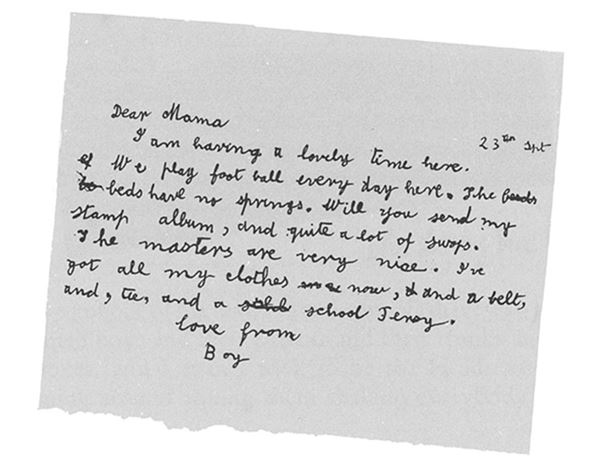 Dear Mama
23th Spt
I am having a lovely time here.
We play foot ball every day here. The
beds have no springs. Will you send my
stamp album, and quite a lot of swops.
The masters are very nice. I've
got all my clothes now, and a belt,
and, tie, and a school Jersy.
love from
Boy